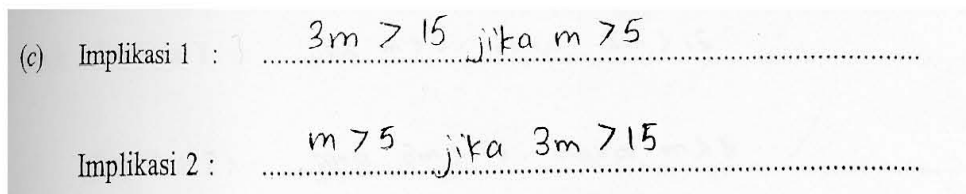 (c) Implikasi 1 : 3m > 15 jika m > 5
Implikasi 2 : m > 5 jika 3m > 15